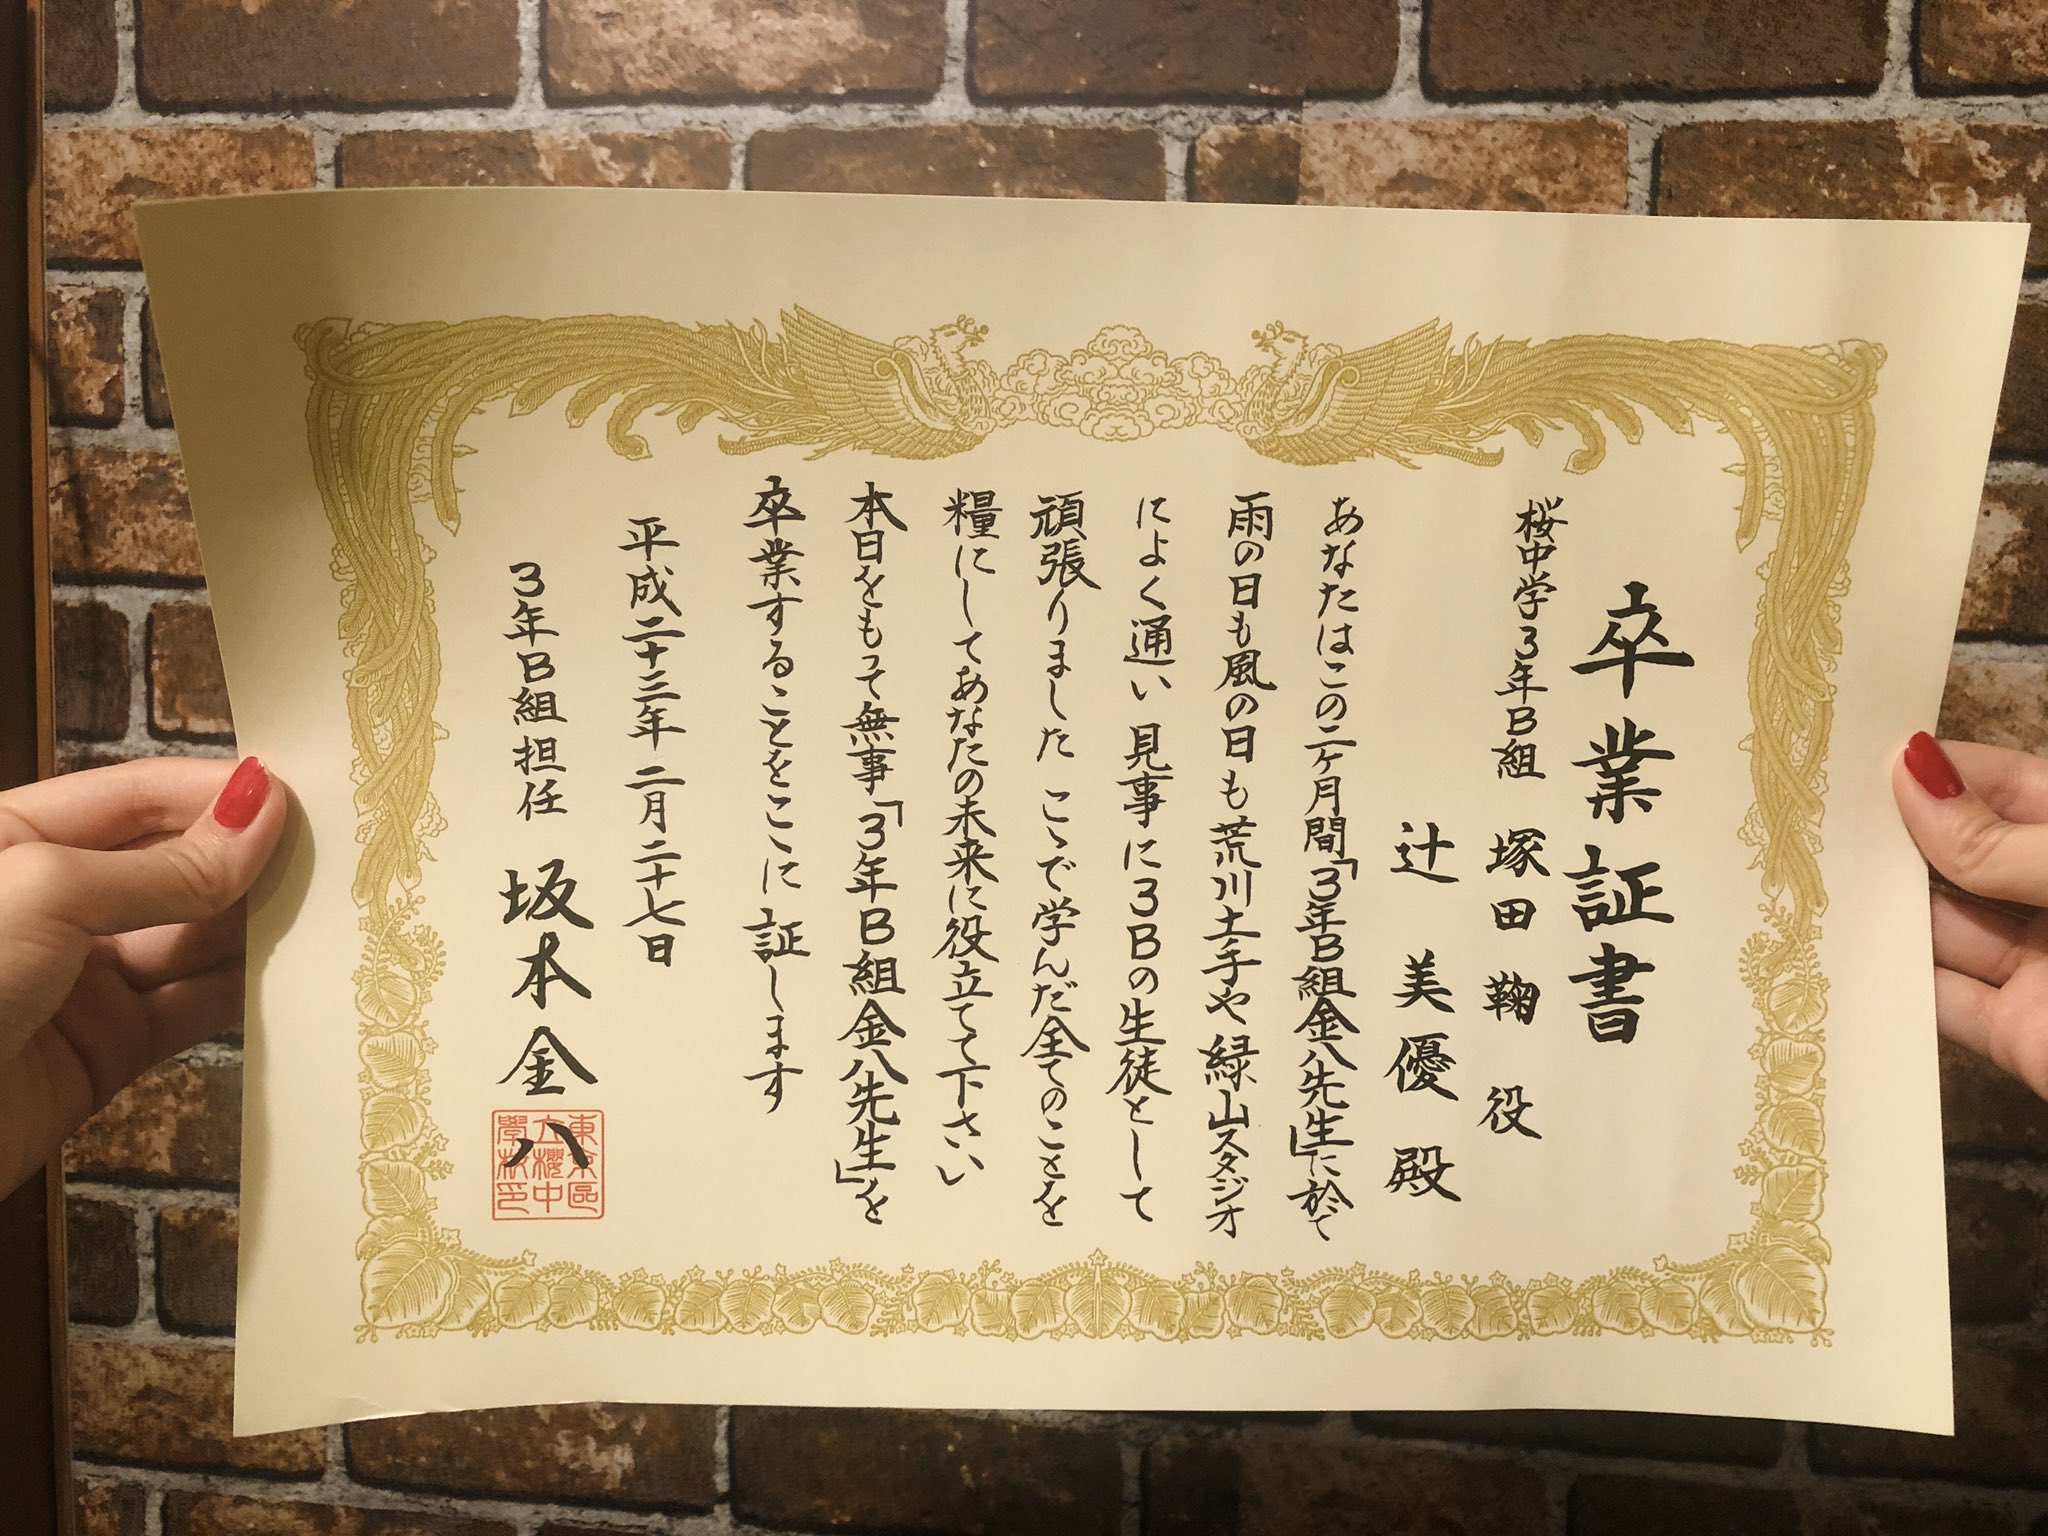 卒業証書
桜中学3年B組 塚田 鞠 役
辻 美優 殿
あなたはこの二ヶ月間「3年B組金八先生」に於て
雨の日も風の日も荒川土手や緑山スタジオ
によく通い見事に3Bの生徒として
頑張りました こゝで学んだ全てのことを
糧にしてあなたの未来に役立てて下さい
本日をもって無事「3年B組金八先生」を
卒業することをこゝに証します
平成二十三年 二月二十七日
3年B組担任 坂本金八
東京區
立櫻中
學校印